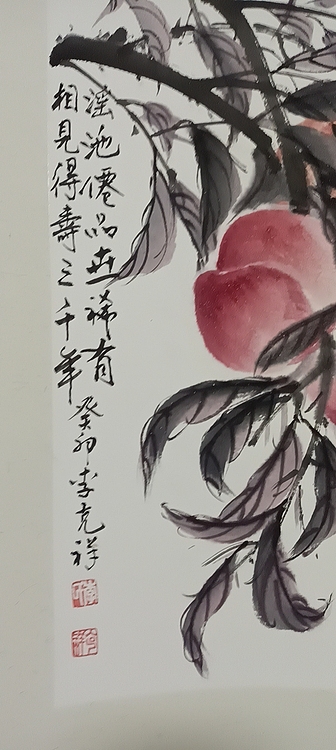 瑶池僊品世稀有
相見得壽三千年
癸卯李克祥